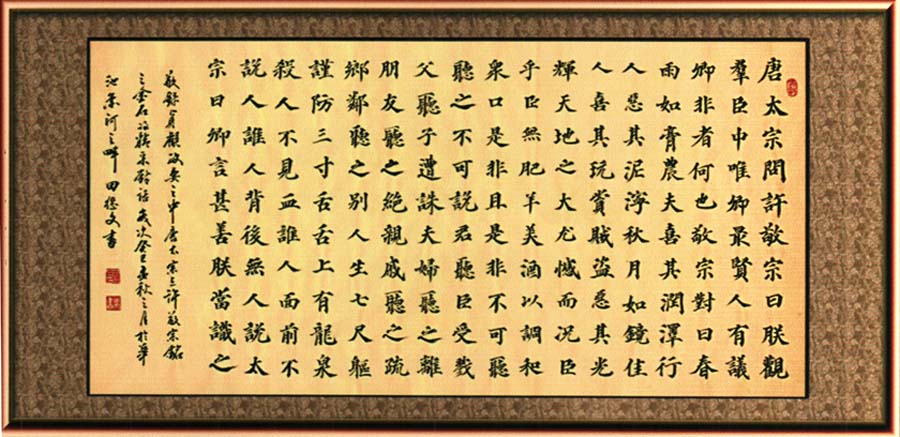 唐太宗問許敬宗曰朕觀
羣臣中唯卿最賢人有議
卿非者何也敬宗對曰春
雨如膏農夫喜其潤澤行
人惡其泥濘秋月如鏡佳
人喜其玩賞賊盜惡其光
輝天地之大尤憾而况臣
乎臣無肥羊美酒以調和
衆口是非且是非不可聽
聽之不可說君聽臣受戮
父聽子遭誅夫婦聽之離
朋友聽之絕親戚聽之疏
鄉鄰聽之別人生七尺軀
謹防三寸舌舌上有龍泉
殺人不見血誰人面前不
說人誰人背後無人說太
宗曰卿言甚善朕當識之
敬錄貞觀政要之中唐太宗與許敬宗銘
之金石的精采對話歲次癸巳孟秋之月於華
池柔河之畔田德文書